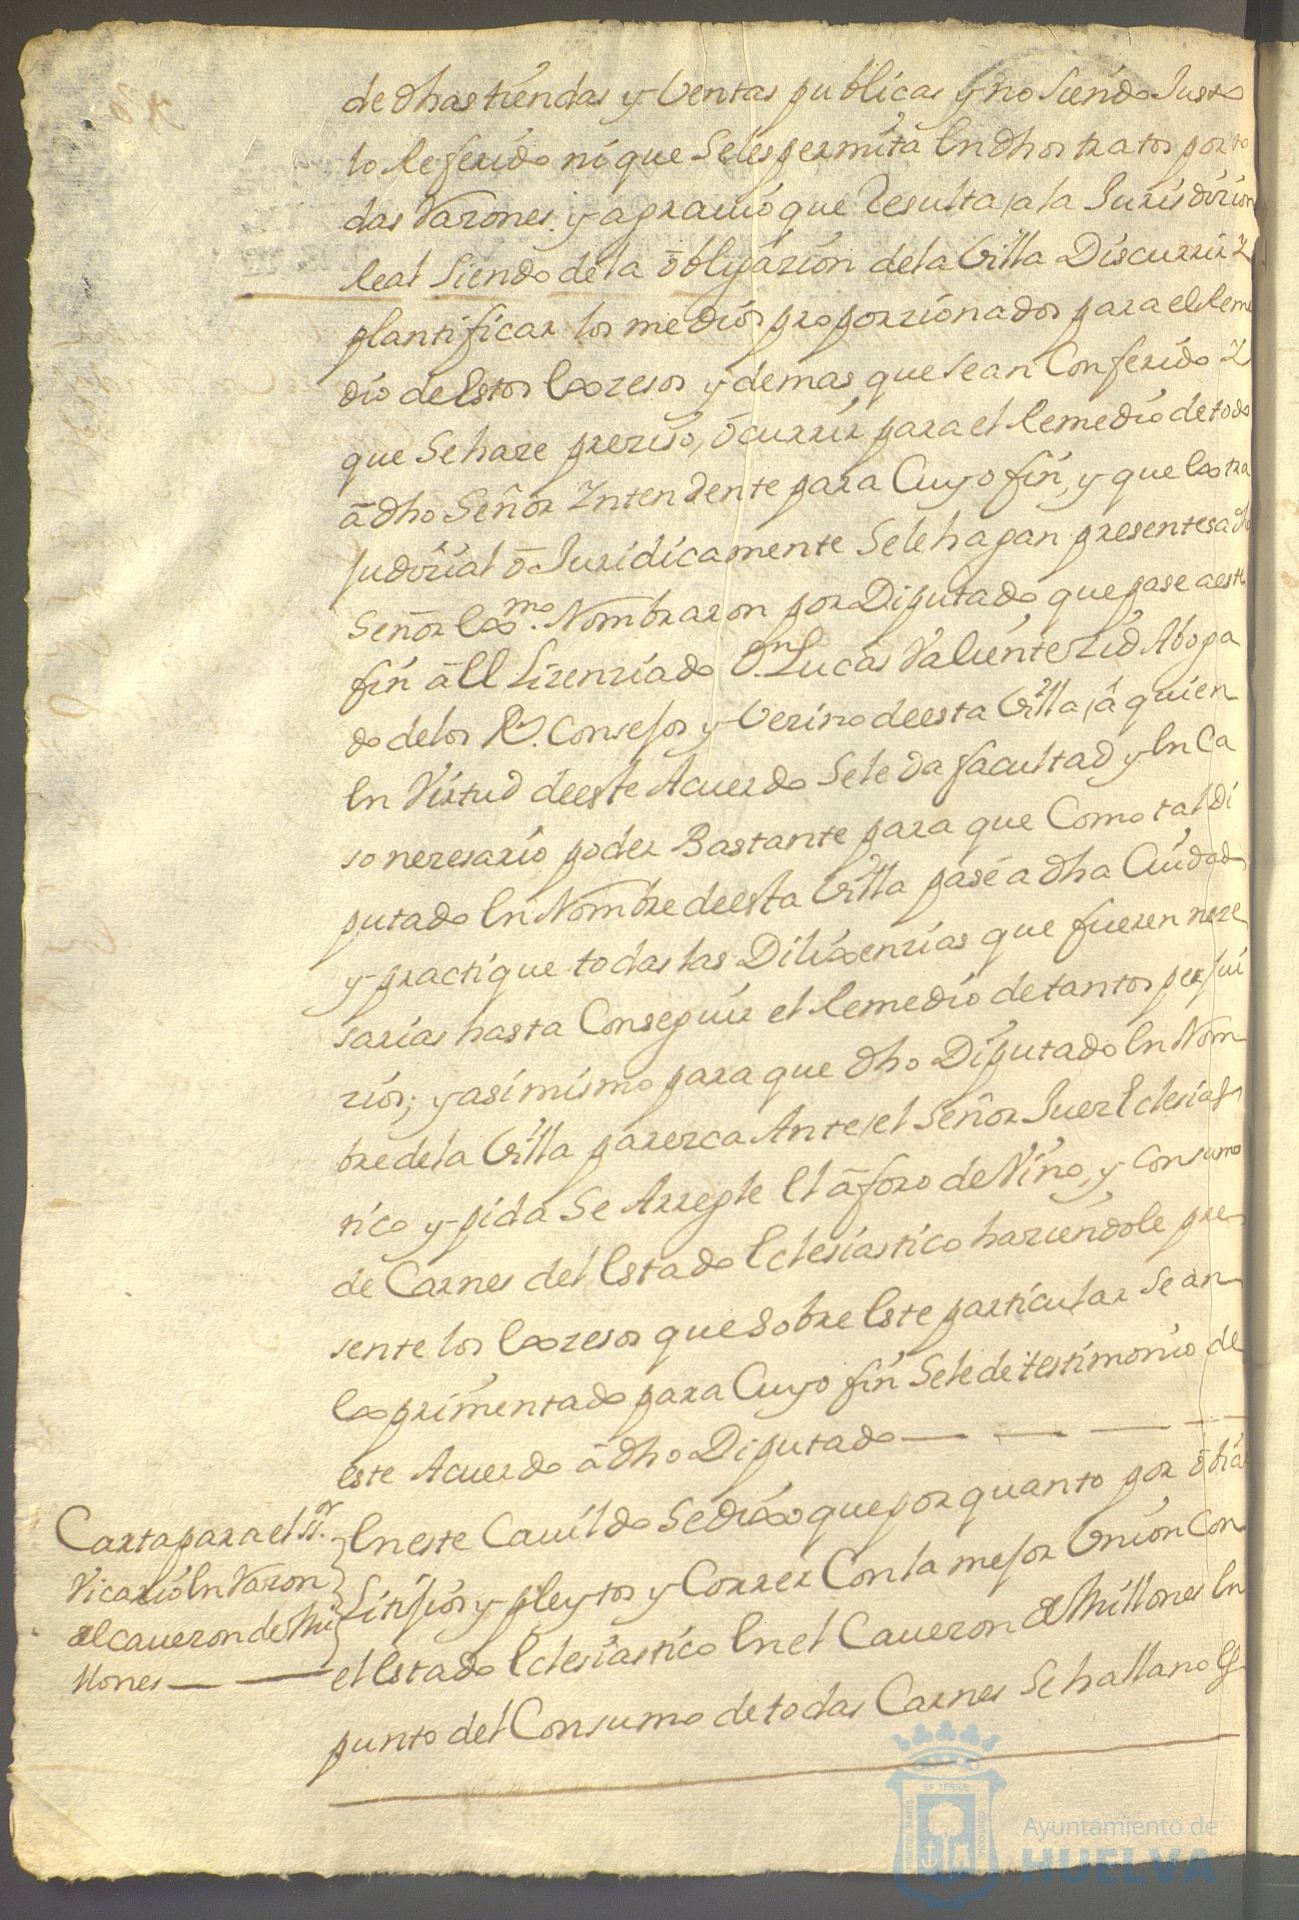 de dhas tiendas y Ventas publicas y no Siendo Justo
lo Referido ni que Seles permita En dhos tratos por to
das Razones. y agrauio que Resulta a la Jurisdizion
Real Siendo de la obligazion de la Villa Discurrir Y
plantificar los medios proporzionados para el Reme
dio de Estos Exzesos y demas que se an Conferido Y
que Se haze prezisо, ocurrir para el Remedio de todo
a dho Señor Yntendente para Cuyo fin, y que Extra
judizial o Juridicamente Sele hagan presentes a dho
Señor Exmo. Nombraron por Diputado que pase a este
fin a El Lizenziado Dn Lucas Valiente Zid Aboga
do de los Rs. Consejos y Vezino de esta Villa, a quien
En Virtud de este Acuerdo Sele da facultad y En Ca
so nezesario poder Bastante para que Como tal Di
putado En Nombre de esta Villa pase a dha Ciudad
y practique todas las Dilixenzias que fueren neze
sarias hasta Conseguir el Remedio de tantos perjui
zios; y asimismo para que dho Diputado En Nom
bre de la Villa parezca Ante el Señor Juez Eclesias
tico y pida Se Arregle El aforo de Vino, y consumo
de Carnes del Estado Eclesiastico haziendole pre
sente los Exzesos que Sobre Este particular Se an
Exprimentado para Cuyo fin Sele de testimonio de
este Acuerdo a dho Diputado
Carta para el Sr.
Vicario En Razon
del caueron de Mi
llones
En este Cauildo Se dixo que por quanto por obiar
Litijios y pleytos y Correr Con la mejor Vnion Con
el Estado Eclesiastico En el Caueron de Millones En
punto del Consumo de todas Carnes Se hallan o Es
Ayuntamiento de
HUELVA